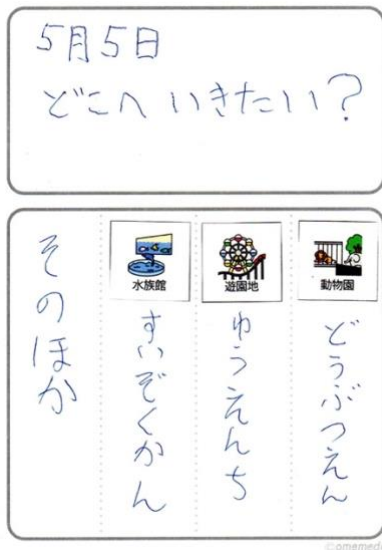 5月5日
どこへ いきたい?
動物園
どうぶつえん
遊園地
ゆうえんち
水族館
すいぞくかん
そのほか
©omemedo